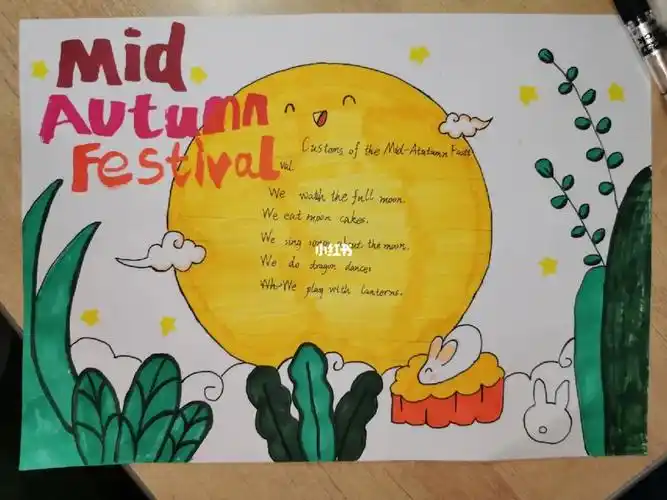 Mid
Autumn
Festival
Customs of the Mid-Atutumn Festi
val
We watch the full moon.
We eat moon cakes.
We sing songs about the moon.
We do dragon dances
We play with lanterns.
小红书